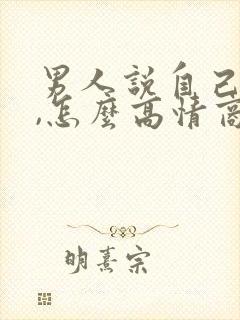 男人說自己
,怎麼高情商
明熹宗